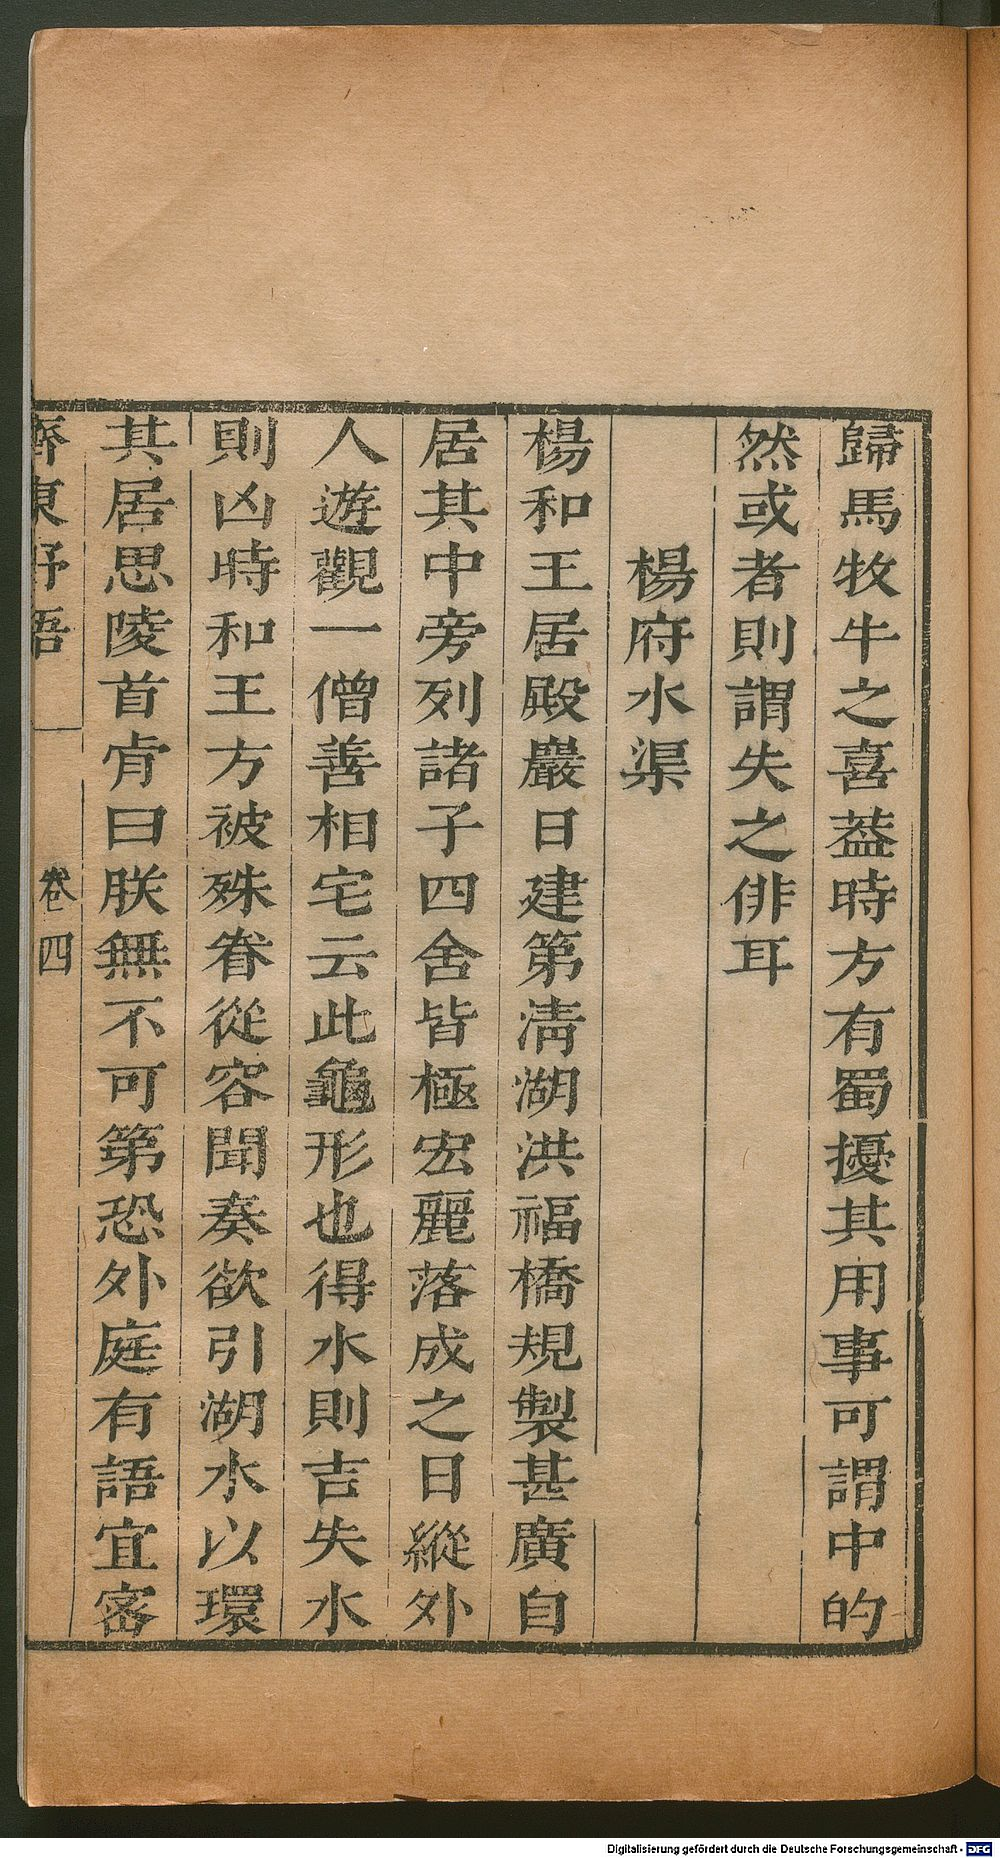 歸馬牧牛之喜葢時方有蜀擾其用事可謂中的
然或者則謂失之俳耳
楊府水渠
楊和王居殿巖日建第淸湖洪福橋規製甚廣自
居其中旁列諸子四舍皆極宏麗落成之日縱外
人遊觀一僧善相宅云此龜形也得水則吉失水
則凶時和王方被殊眷從容聞奏欲引湖水以環
其居思陵首肯曰朕無不可第恐外庭有語宜密
齊東野語 卷四
Digitalisierung gefördert durch die Deutsche Forschungsgemeinschaft - DFG